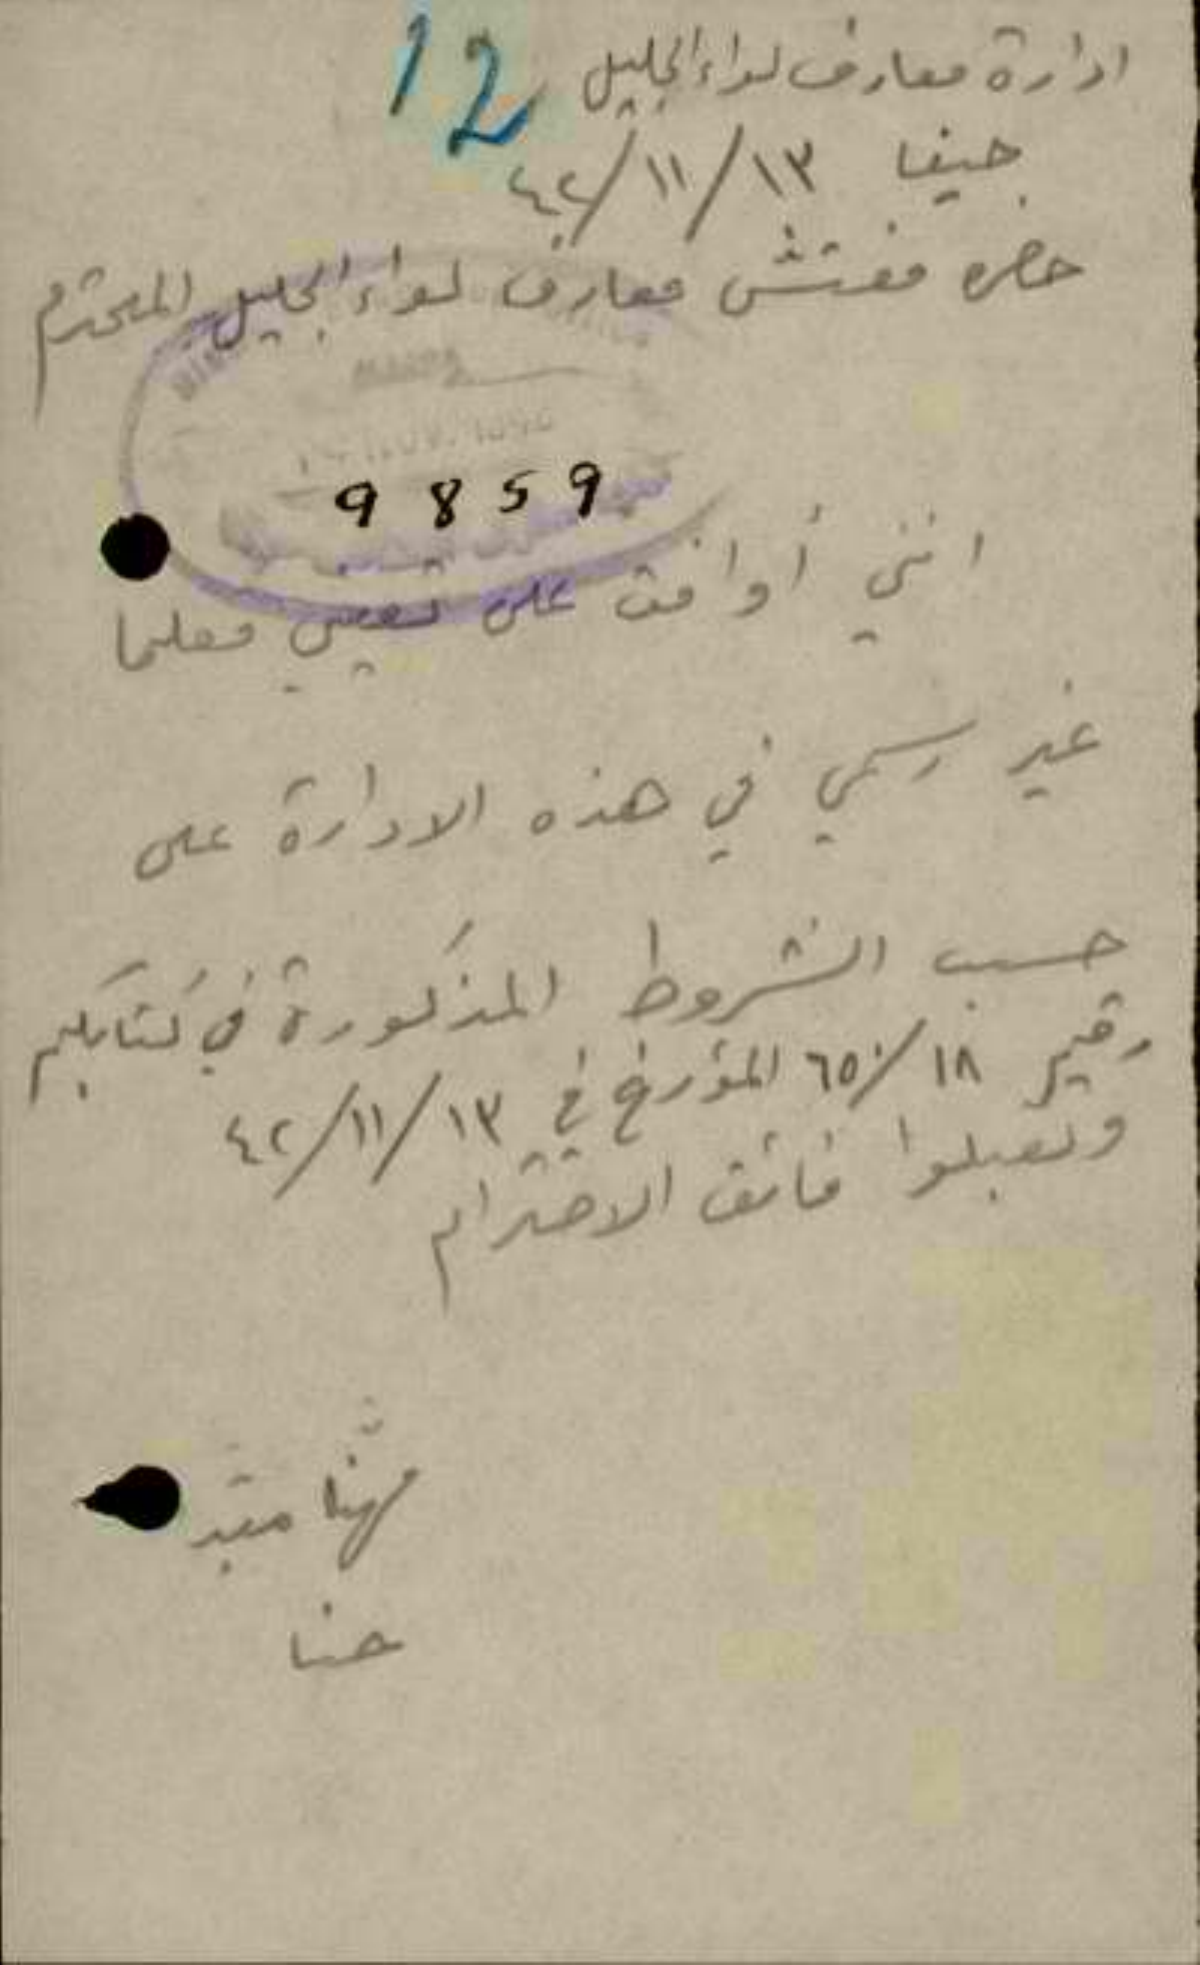 12
ادارة معارف لواء الجليل
حيفا ١٣/١١/٤٢
حضره مفتش معارف لواء الجليل المحترم
9859
انني أوافق على تعييني معلما
غير رسمي في هذه الادارة على
حسب الشروط المذكورة في كتابكم
رقم ٦٥/١٨ المؤرخ في ١٣/١١/٤٢
وتقبلوا فائق الاحترام
مهنا
حنا